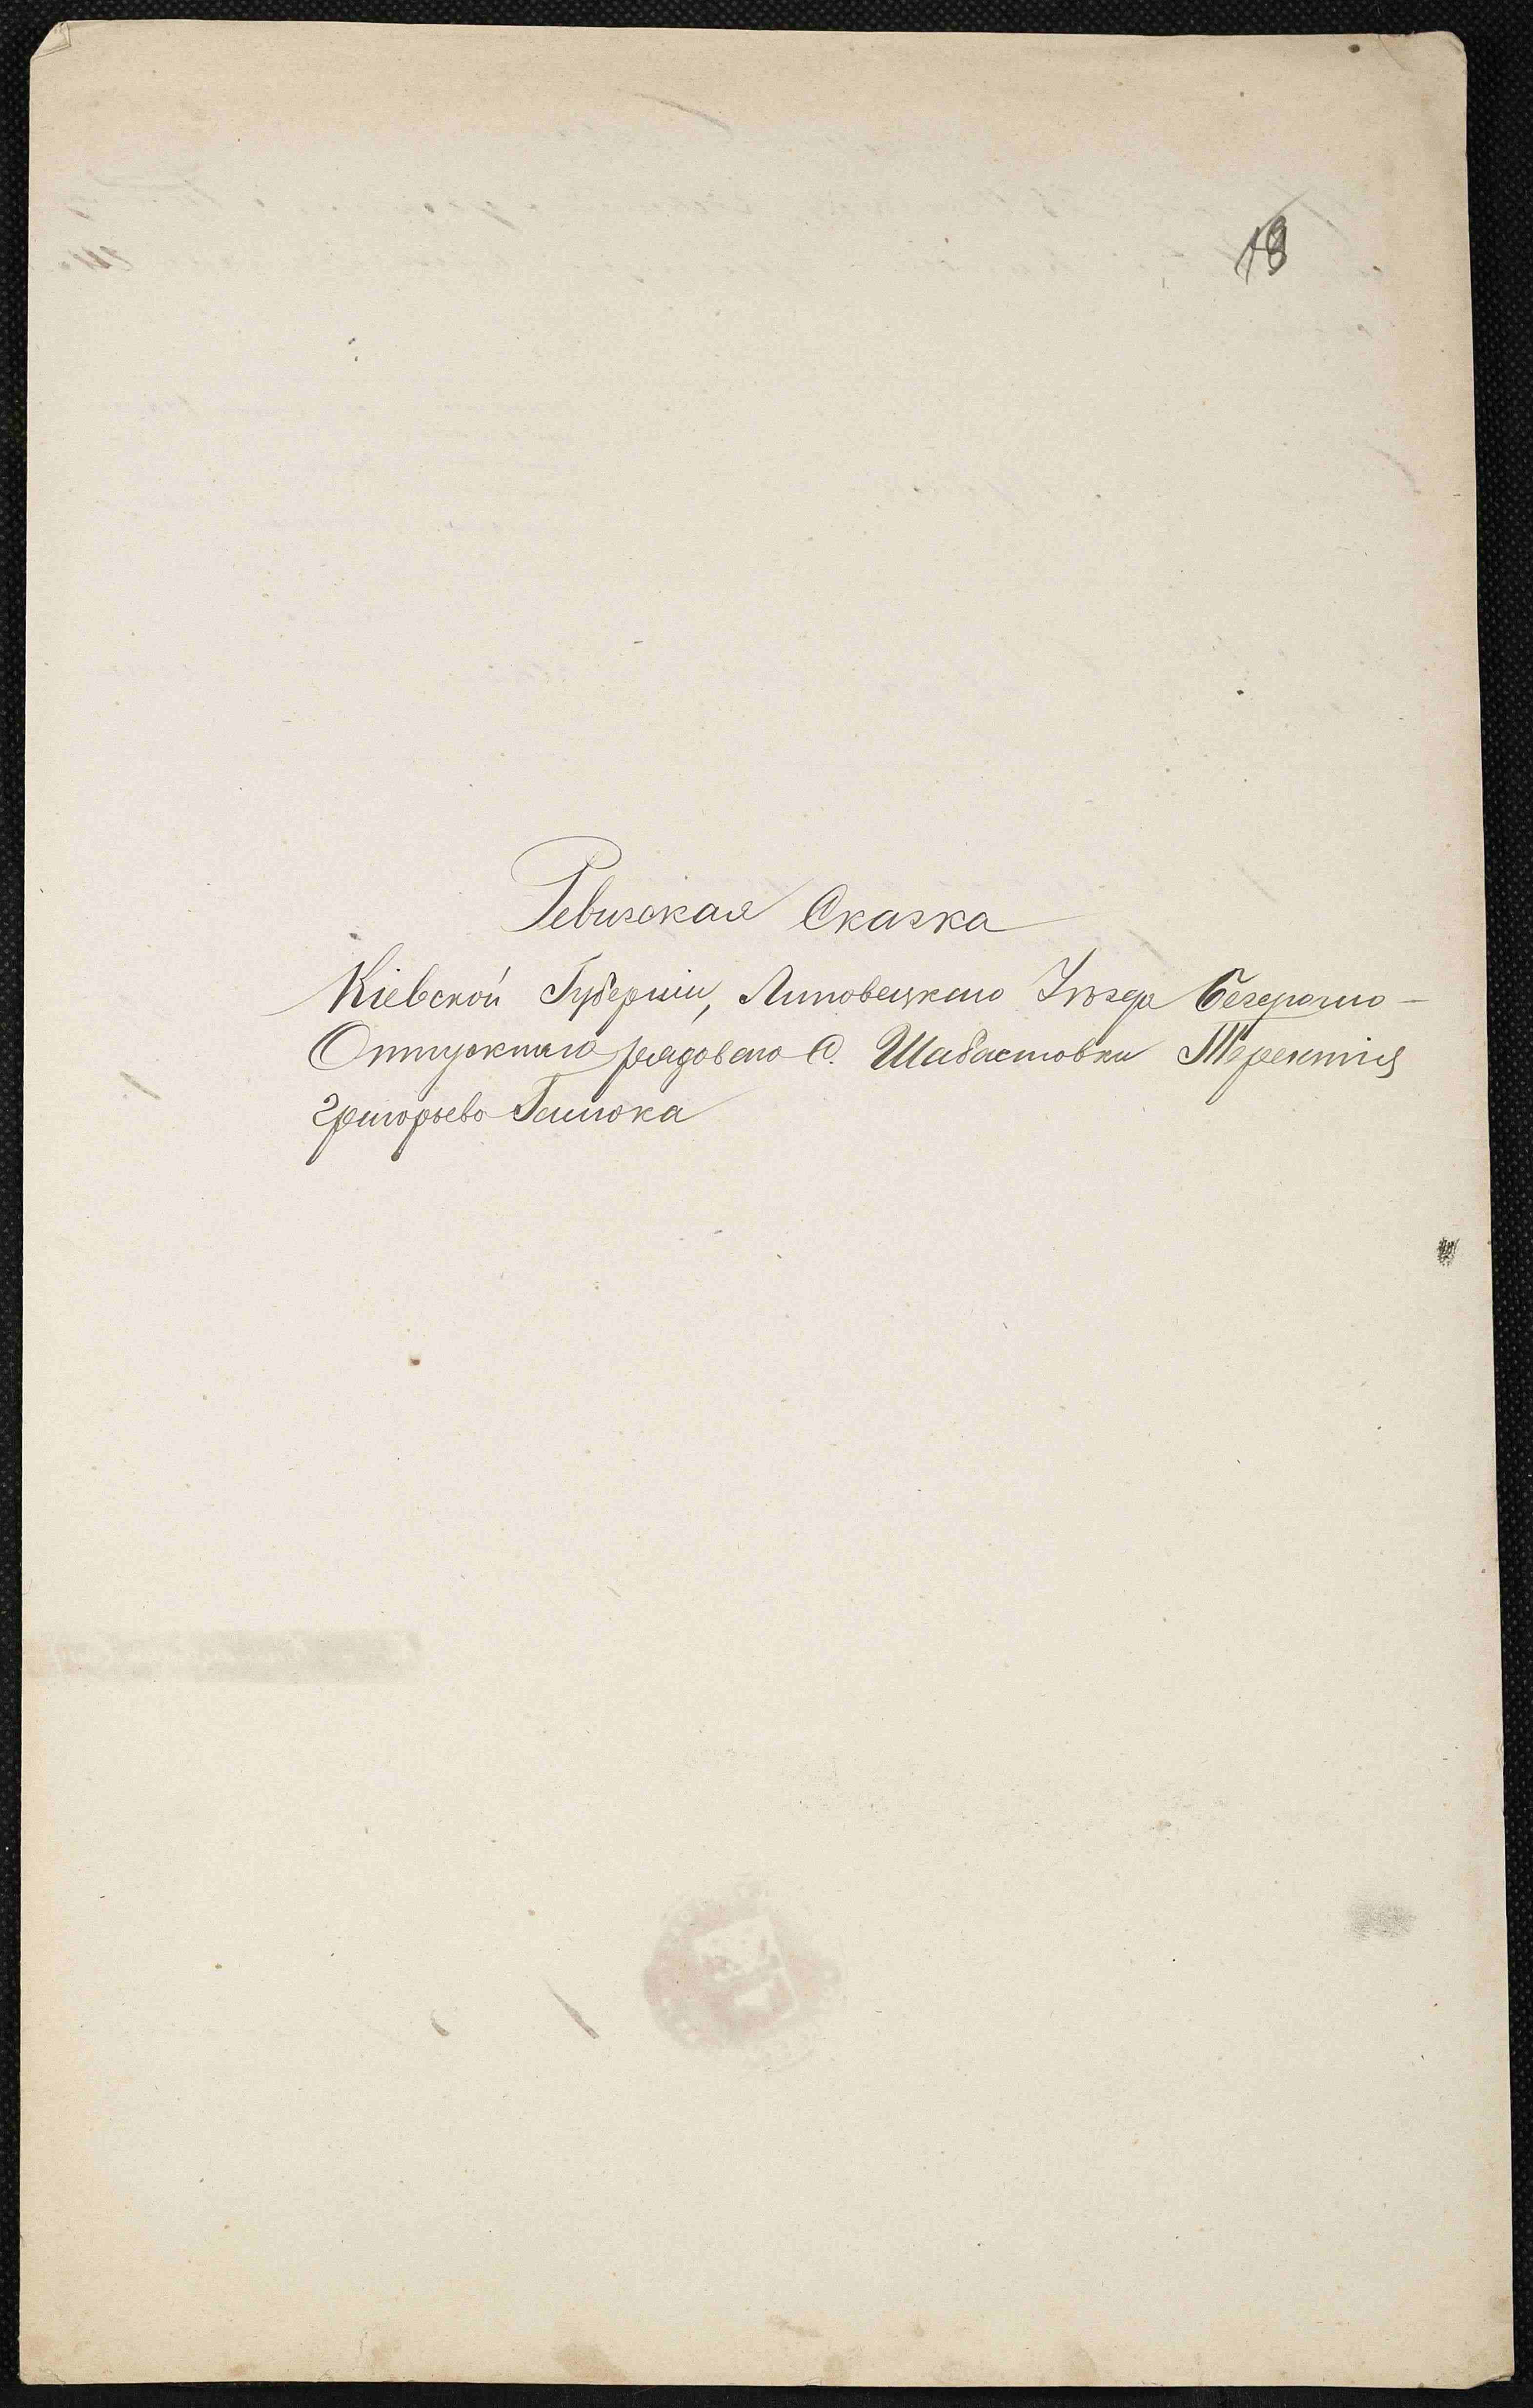 18
Ревизская Сказка
Кіевской Губерніи, Липовецкаго Уѣзда Безсрочно-
Отпускнаго рядоваго С. Шабастовки Терентія
Григорьева Гашока